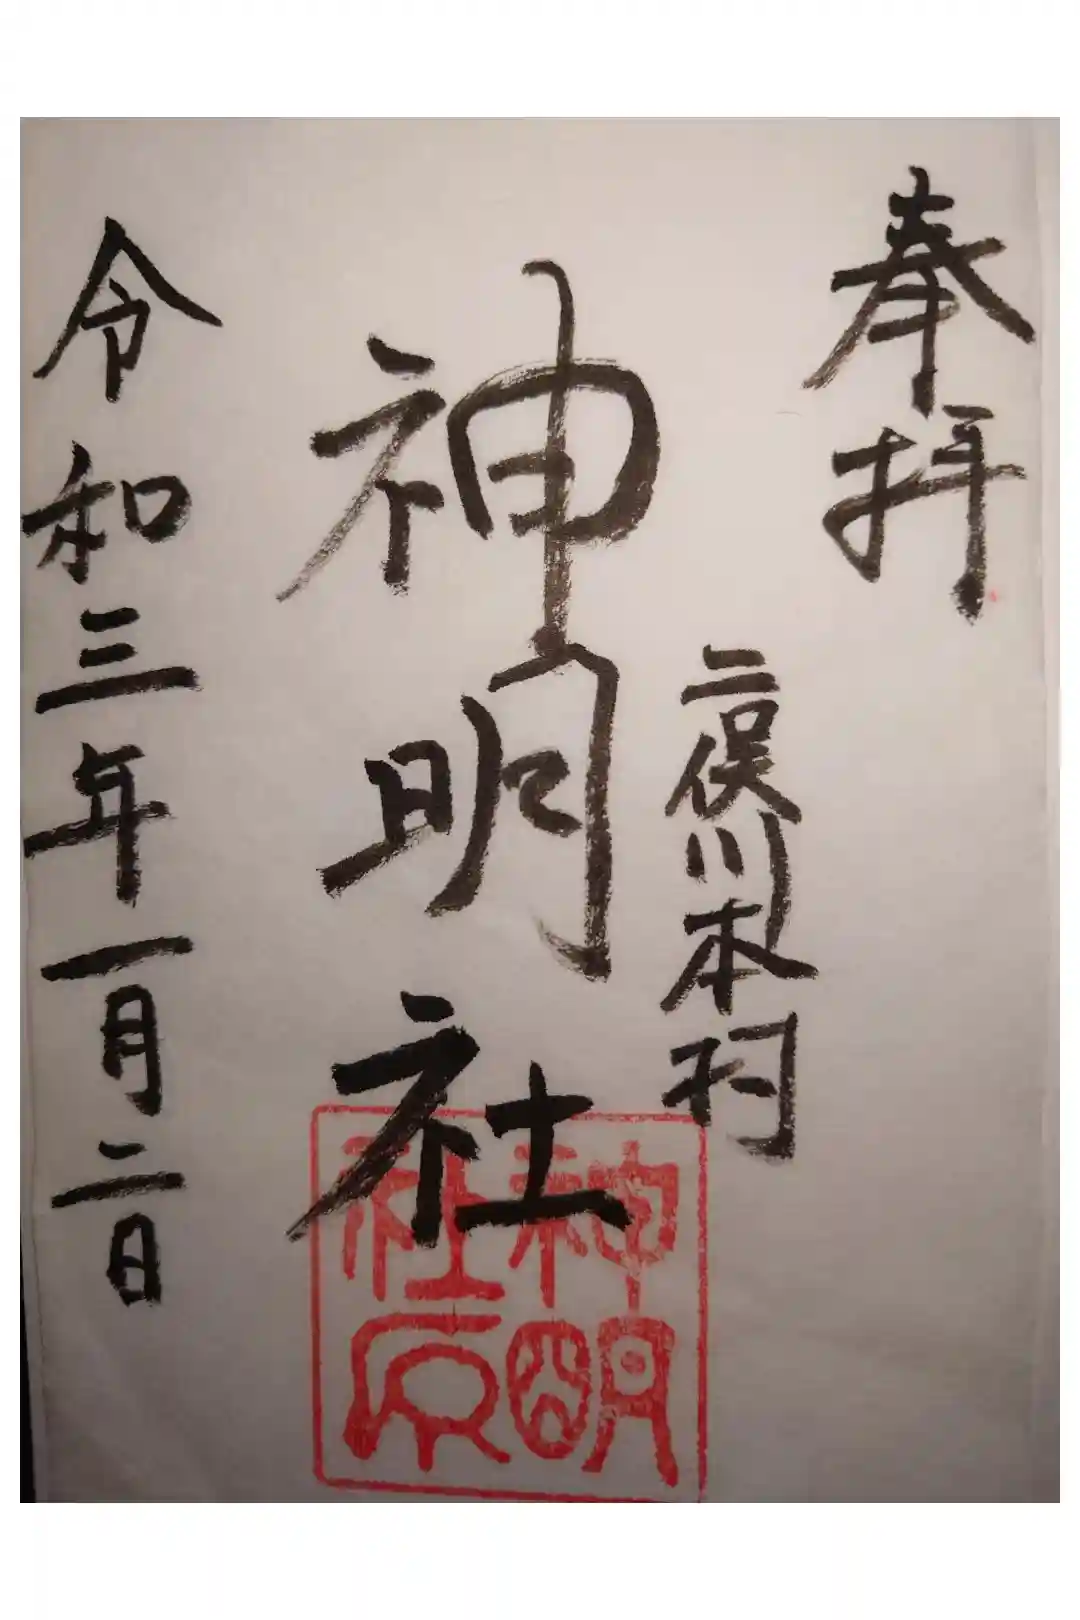 奉拝
二俣川本村
神明社
令和三年一月二日
神明
社